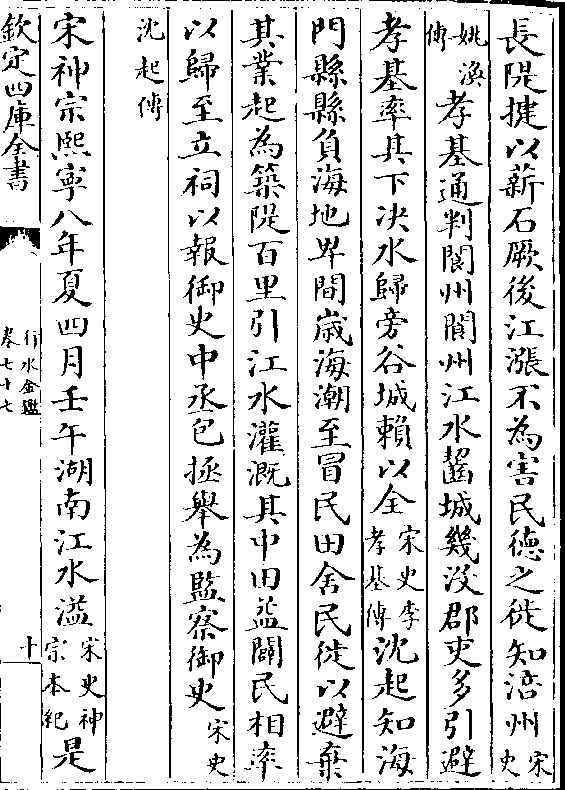 長隄揵以薪石厥後江漲不為害民德之徙知涪州宋史
姚渙傳孝基通判閬州閬州江水齧城幾没郡吏多引避
孝基率其下决水歸旁谷城賴以全宋史李孝基傳沈起知海
門縣縣負海地卑間歲海潮至冒民田舍民徙以避棄
其業起為築隄百里引江水灌溉其中田益闢民相率
以歸至立祠以報御史中丞包拯舉為監察御史宋史
沈起傳
宋神宗熙寧八年夏四月壬午湖南江水溢宋史神宗本紀是
欽定四庫全書
行水金鑑
卷七十七
十